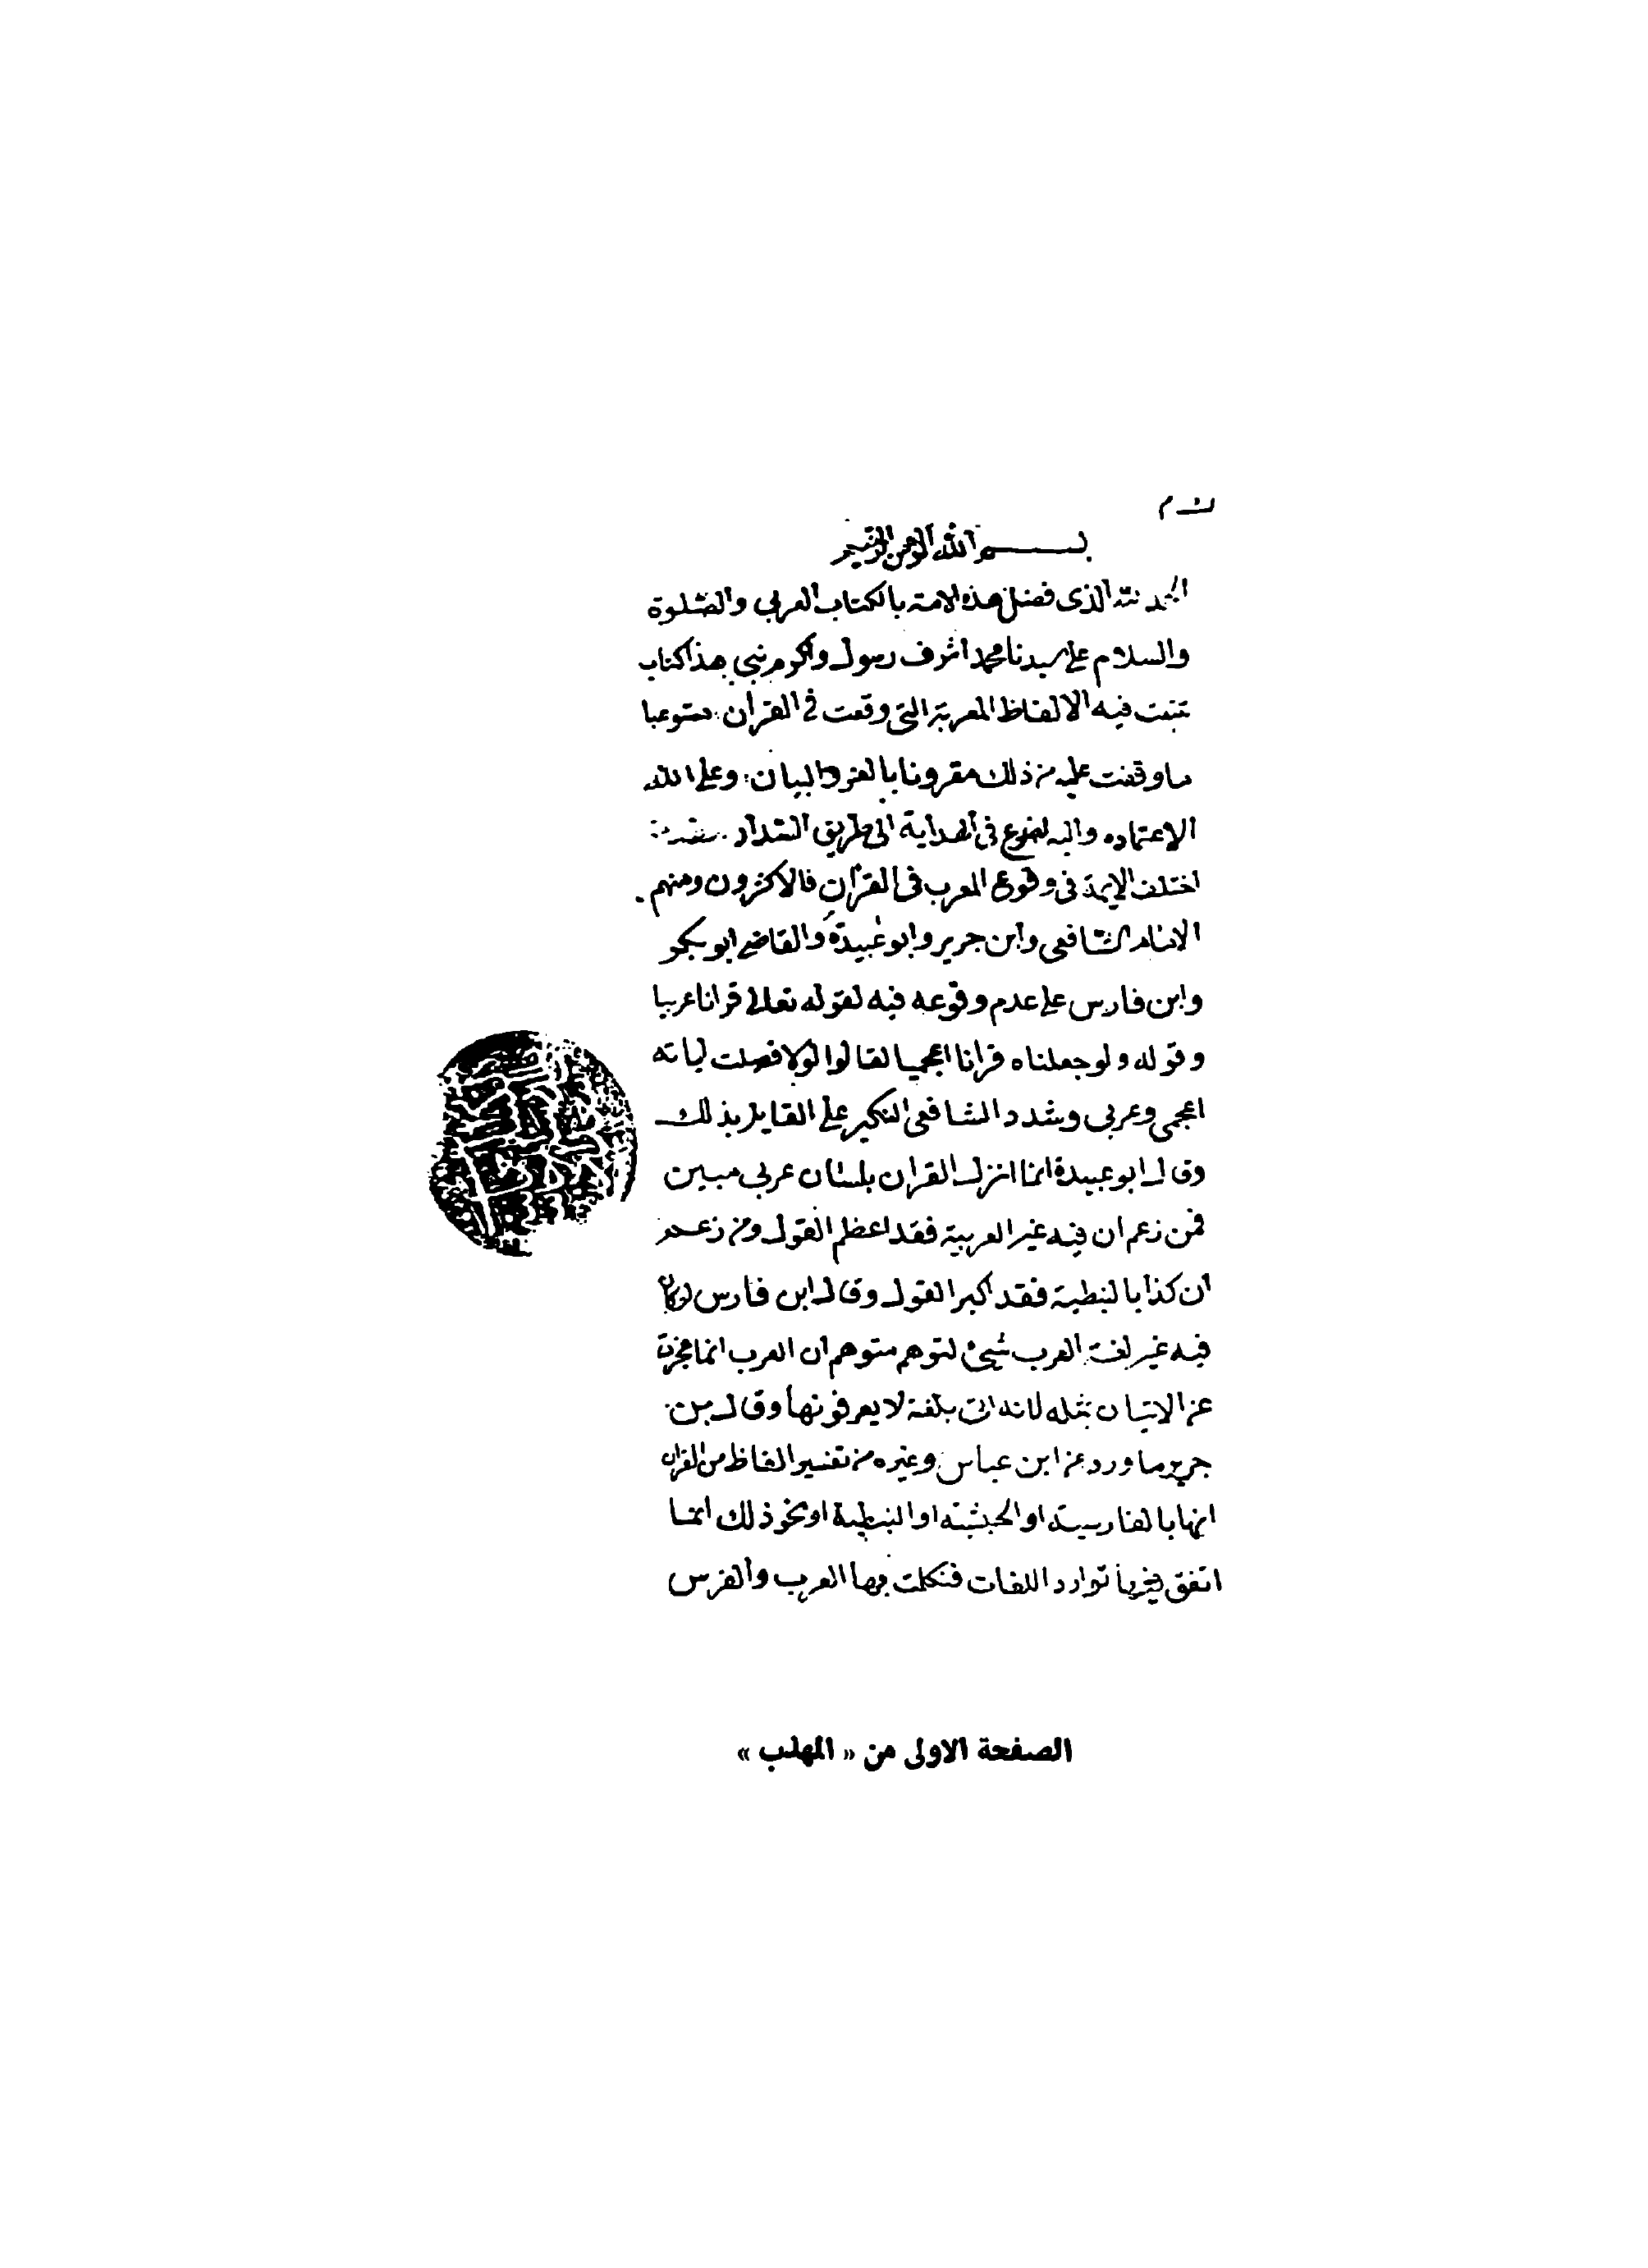 بسم الله الرحمن الرحيم
الحمد لله الذى فضل هذه الامة بالكتاب العربي والصلوة
والسلام على سيدنا محمد اشرف رسول واكرم نبي هذا كتاب
تتبعت فيه الالفاظ المعربة التي وقعت في القرآن مستوعبا
ما وقفت عليه من ذلك مقرونا بالعزو والبيان وعلى الله
الاعتماد واليه في الهداية الى طريق السداد مقدمة
اختلف الايمة فى وقوع المعرب فى القرآن فالاكثرون ومنهم
الامام الشافعى وابن جرير وابو عبيدة والقاضي ابو بكر
وابن فارس على عدم وقوعه فيه لقوله تعالى قرانا عربيا
وقوله ولو جعلناه قرانا اعجميا لقالوا لولا فصلت اياته
اعجمى وعربي وشدد الشافعى النكير على القايل بذلك
وقال ابو عبيدة انما انزل القران بلسان عربي مبين
فمن زعم ان فيه غير العربية فقد اعظم القول ومن زعم
ان كذا بالنبطية فقد اكبر القول وقال ابن فارس لو كان
فيه غير لغة العرب شيئ لتوهم متوهم ان العرب انما عجزت
عن الاتيان بمثله لانه اتى بلغة لا يعرفونها وقال بن
جرير ما ورد عن ابن عباس وغيره من تفسير الفاظ من القران
انها بالفارسية او الحبشية او النبطية او نحو ذلك انما
اتفق فيها توارد اللغات فتكلمت بها العرب والفرس
الصفحة الاولى من « المهذب »